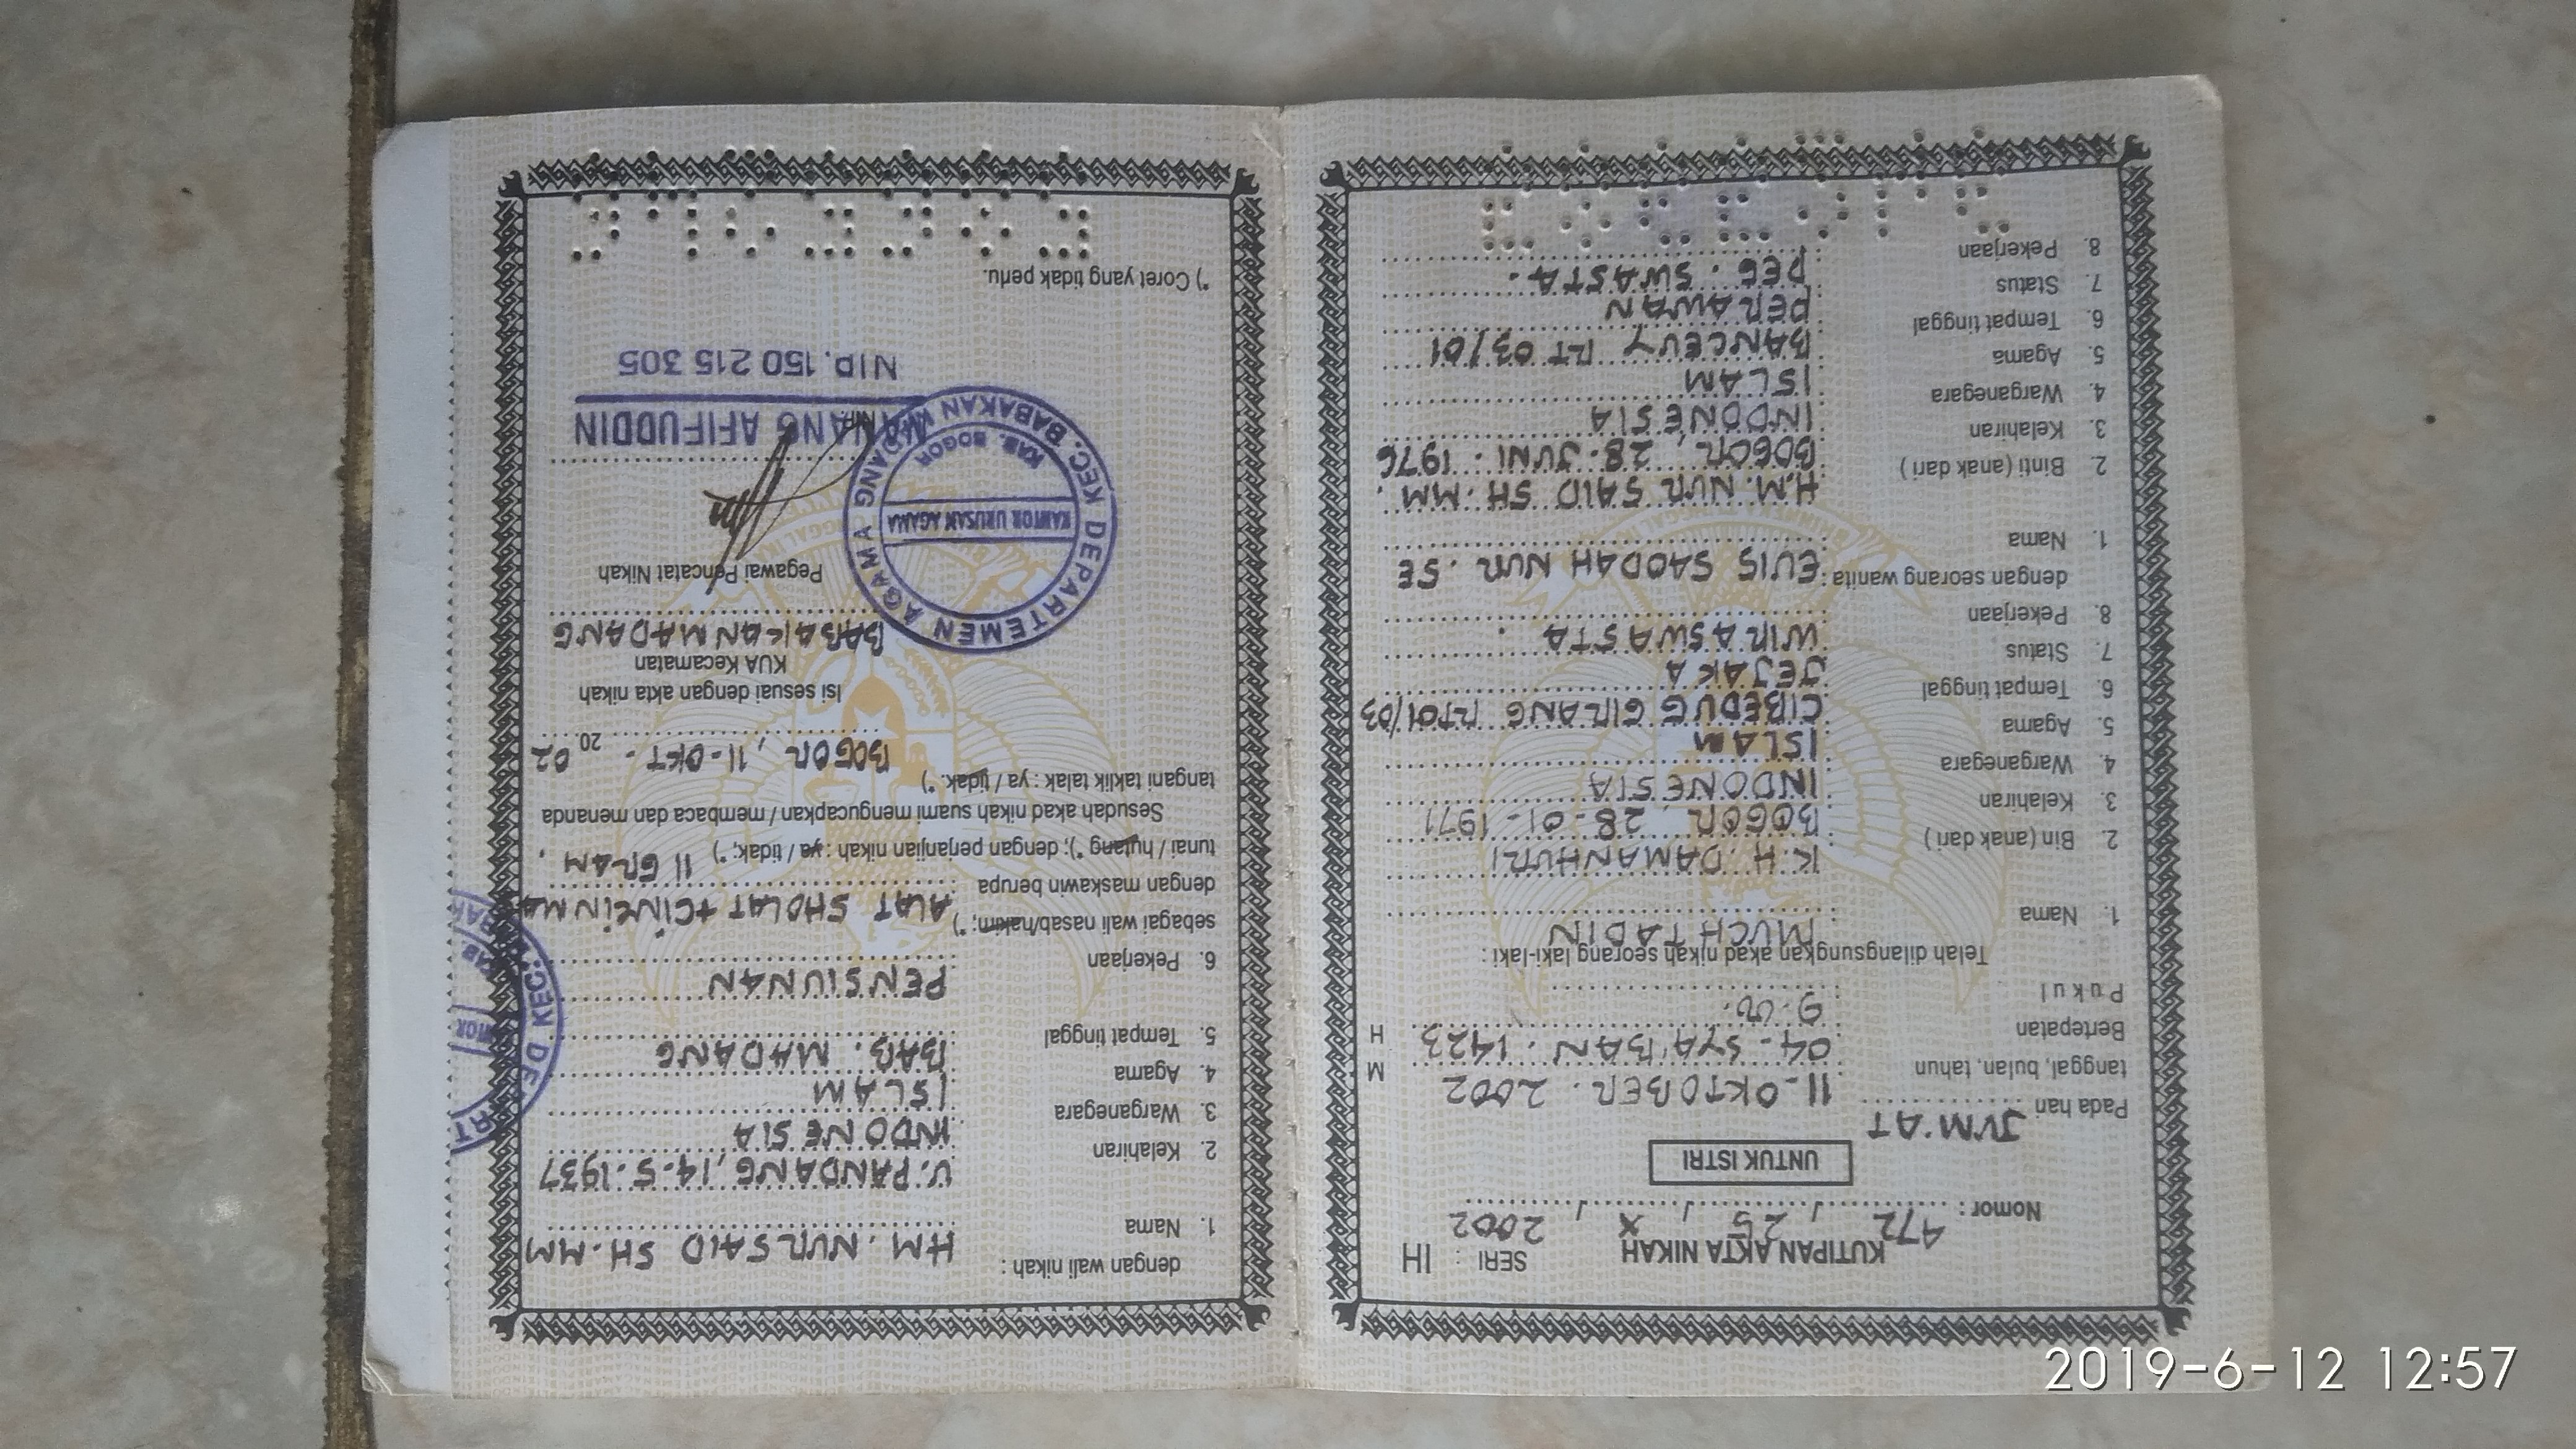 KUTIPAN AKTA NIKAH SERI : IH
Nomor : 472 / 25 / X / 2002
UNTUK ISTRI
Pada hari JUM'AT
tanggal, bulan, tahun 11-OKTOBER. 2002 M
Bertepatan 04-SYA'BAN. 1423 H
Pukul 9.00.
Telah dilangsungkan akad nikah seorang laki-laki :
1. Nama MUCHTADIN
2. Bin (anak dari) K.H. DAMANHURI
3. Kelahiran BOGOR, 28-01-1971
4. Warganegara INDONESIA
5. Agama ISLAM
6. Tempat tinggal CIBEDUG GIRANG RT01/03
7. Status JEJAKA
8. Pekerjaan WIRASWASTA.
dengan seorang wanita :
1. Nama EUIS SAODAH NUR. SE
2. Binti (anak dari) H.M. NUR SAID SH. MM.
3. Kelahiran BOGOR, 28. JUNI. 1976
4. Warganegara INDONESIA
5. Agama ISLAM
6. Tempat tinggal BANCEUY RT 03/01
7. Status PERAWAN
8. Pekerjaan PEG. SWASTA.
dengan wali nikah :
1. Nama HM. NUR SAID SH. MM
2. Kelahiran U. PANDANG, 14-5-1937
3. Warganegara INDONESIA
4. Agama ISLAM
5. Tempat tinggal BAB. MADANG
6. Pekerjaan PENSIUNAN
sebagai wali nasab/hakim; *)
dengan maskawin berupa : ALAT SHOLAT + CINCIN MAS
11 GRAM.
tunai / hutang *); dengan perjanjian nikah : ya / tidak; *)
Sesudah akad nikah suami mengucapkan / membaca dan menanda
tangani taklik talak : ya / tidak. *)
BOGOR, 11-OKT- 20 02
Isi sesuai dengan akta nikah
KUA Kecamatan
BABAKAN MADANG
Pegawai Pencatat Nikah
DEPARTEMEN AGAMA
KANTOR URUSAN AGAMA
KAB. BOGOR
KEC. BABAKAN MADANG
NANANG AFIFUDDIN
NIP. 150 215 305
*) Coret yang tidak perlu.
2019-6-12 12:57